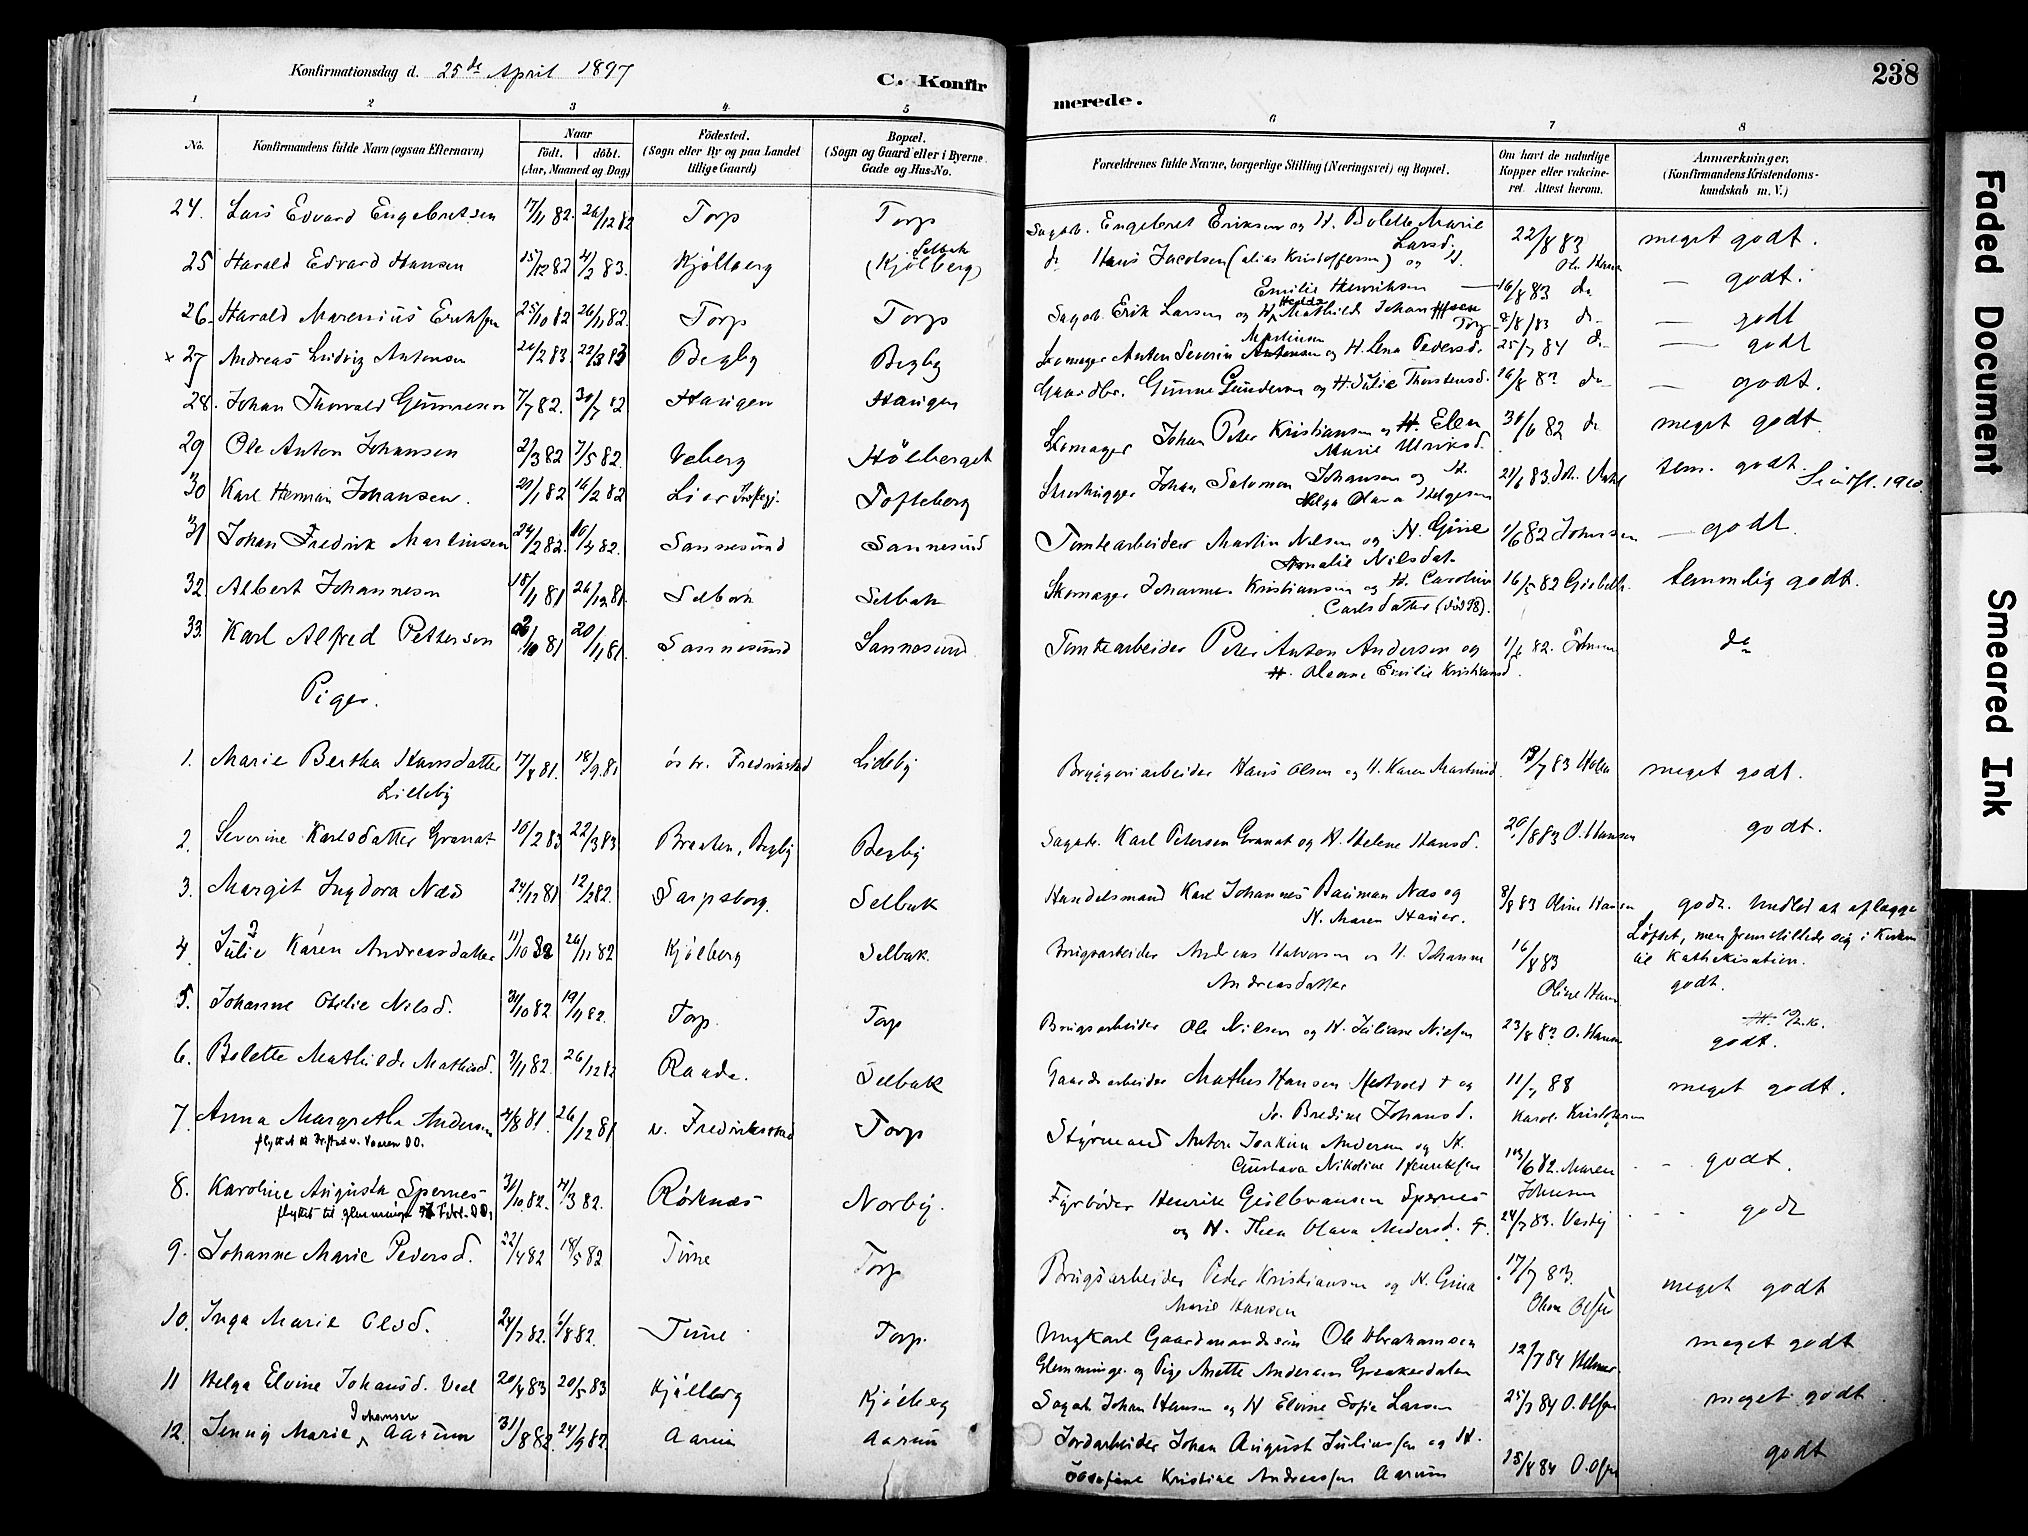 Konfirmationsdag d. 25de April 1897
C. Konfir
merede.
238
1 2 3 4 5 6 7 8
No.
Konfirmandens fulde Navn (ogsaa Efternavn)
Naar
født. døbt.
(Aar, Maaned og Dag)
Fødested.
(Sogn eller By og paa Landet
tillige Gaard)
Bopæl.
(Sogn og Gaard eller i Byerne
Gade og Hus-No.
Forældrenes fulde Navne, borgerlige Stilling (Næringsvei) og Bopæl.
Om havt de naturlige
Kopper eller vakcine-
ret. Attest herom.
Anmærkninger,
(Konfirmandens Kristendoms-
kundskab m. V.)
24. Lars Edvard Engebretsen 17/11 82. 26/12 82 Torp Torp Sagarb. Engebret Eriksen og H. Bolette Marie Larsd. 22/8 83 meget godt.
25 Harald Edvard Hansen 15/12 82 4/2 83. Kjölberg Selbak (Kjölberg) do Hans Jacobsen (alias Kristoffersen) og H. Emilie Henriksen 16/8 83 do — godt.
26. Harald Marenius Eriksen 25/10 82 26/11 82. Torp Torp Sagarb. Erik Larsen og H. Hedda Mathilde Johan Torp /8/83 do — godt
× 27 Andreas Ludvig Antonsen /2 83. /3 83 Begby Begby Skomager Anton Severin Martinsen og H. Lena Pedersd. 25/7 84 do — godt
28. Johan Thorvald Gunnesen 7/7 82. 30/7 82 Haugen Haugen Gaardbr. Gunne Gundersen og H. Julie Thorstensd. 16/8 83 do — godt.
29 Ole Anton Johansen 22/3 82 7/5 82. Veberg Hölberget Skomager Johan Peter Kristiansen og H. Elen Marie Ulriksd. 30/6 82 do meget godt.
30 Karl Herman Johansen. 20/1 82 16/2 82 Lier Tofteberg Stenhugger Johan Salomon Johansen og H. Helga Olava Helgesen 21/6 83. tem. godt. 1910.
31 Johan Fredrik Martinsen 24/2 82. 10/4 82. Sannesund Sannesund Tomtearbeider Martin Nilsen og H. Gine Amalie Nilsdat. 1/6 82 Johnsen — godt.
32. Albert Johannesen 18/11 81 26/12 81. Selbak Selbak Skomager Johannes Kristiansen og H. Caroline Carlsdatter (död 98). 16/5 82 temmelig godt.
33. Karl Alfred Pettersen /10 81 20/11 81. Sannesund Sannesund Tomtearbeider Peter Anton Andersen og H. Oleane Emilie Kristiansd. 1/6 82. Johnsen do
Piger.
1. Marie Bertha Hansdatter Lilleby 17/8 81. 18/9 81 ös tr. Fredrikstad Lideby Bryggeriarbeider Hans Olsen og H. Karen Martinsd. /7 83 Holen meget godt.
2. Severine Karlsdatter Granat 16/2 83 22/3 83 Braaten, Begby Begby Sagarb. Karl Petersen Granat og H. Helene Hansd. 20/8 83 O. Hansen godt.
3. Margit Ingdora Næs 24/12 81 12/2 82. Sarpsborg. Selbak Handelsmand Karl Johannes Bauman Næs og H. Maren Hauer. 8/8 83 Oline Hansen godt. Undlod at aflægge Löftet, men fremstillede sig i Kirken til Kathekisation.
4. Julie Karen Andreasdatter 11/10 82 26/11 82 Kjölberg Selbak. Brugsarbeider Andreas Halvorsen og H. Johanne Andreasdatter 16/8 83 Oline Hansen godt.
5. Johanne Otilie Nilsd. 31/10 82 19/11 82. Torp. Torp Brugsarbeider Ole Nilsen og H. Juliane Nilsen 23/8 83 O. Hansen godt.
6. Bolette Mathilde Mathisd. 7/11 82. 26/12 82 Raade. Selbak Gaardsarbeider Mathis Hansen Hestvold † og H. Bredine Johansd. 11/7 88 Karol. Kristofersen meget godt.
7. Anna Margretha Andersen 4/8 81. 26/12 81 v. Fredrikstad Torp Styrmand Anton Joakim Andersen og H. Gustava Nikoline Henriksen 13/6 82. Maren Johnsen godt.
8. Karoline Augusta Spernes 31/10 82. 4/3 82. Røknæs Norby. Fyrböder Henrik Gulbransen Spernes og H. Thea Olava Andersd. 24/7 83. Vestby godt
9. Johanne Marie Pedersd. 22/4 82 18/5 82 Tune Torp Brugsarbeider Peder Kristiansen og H. Gina Marie Hansen 17/7 83. Olsen meget godt
10. Inga Marie Olsd. 24/7 82. 6/8 82. Tune Torp. Ungkarl Gaardmandssön Ole Abrahamsen Glemminge og Pige Anette Andersen Greakerdalen 12/7 84 meget godt
11 Helga Elvine Johansd. Ved 20/4 83 20/5 83 Kjölberg Kjölberg Sagarb. Johan Hansen og H Elvine Sofie Larsen 25/7 84 O. Olsen meget godt
12. Jenny Marie Johansen Aarum 31/8 82. 24/9 82. Aarum Aarum Jordarbeider Johan August Juliussen og H. Josefine Kristine Andreassen Aarum 15/8 84 O. Olsen godt
Faded Document
Smeared Ink